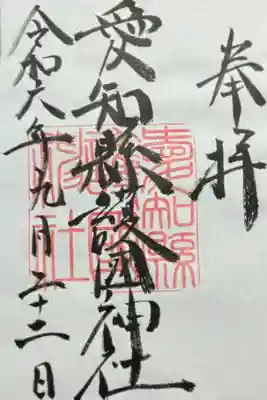 奉拝
愛知縣護國神社
令和六年九月二十二日
愛知縣
護國
神社